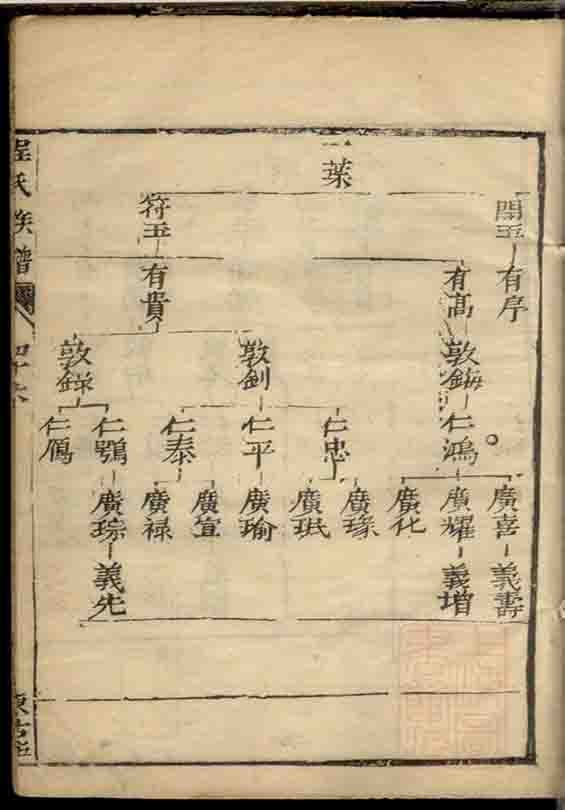 一葉
開玉 符玉
有序 有高 有貴
敦鋂 敦釗 敦錄
仁鴻 仁忠 仁平 仁泰 仁鶚 仁鴈
廣喜 廣耀 廣化 廣瑑 廣珉 廣瑜 廣宣 廣祿 廣琮
義壽 義增 義先
程氏族譜
四十六